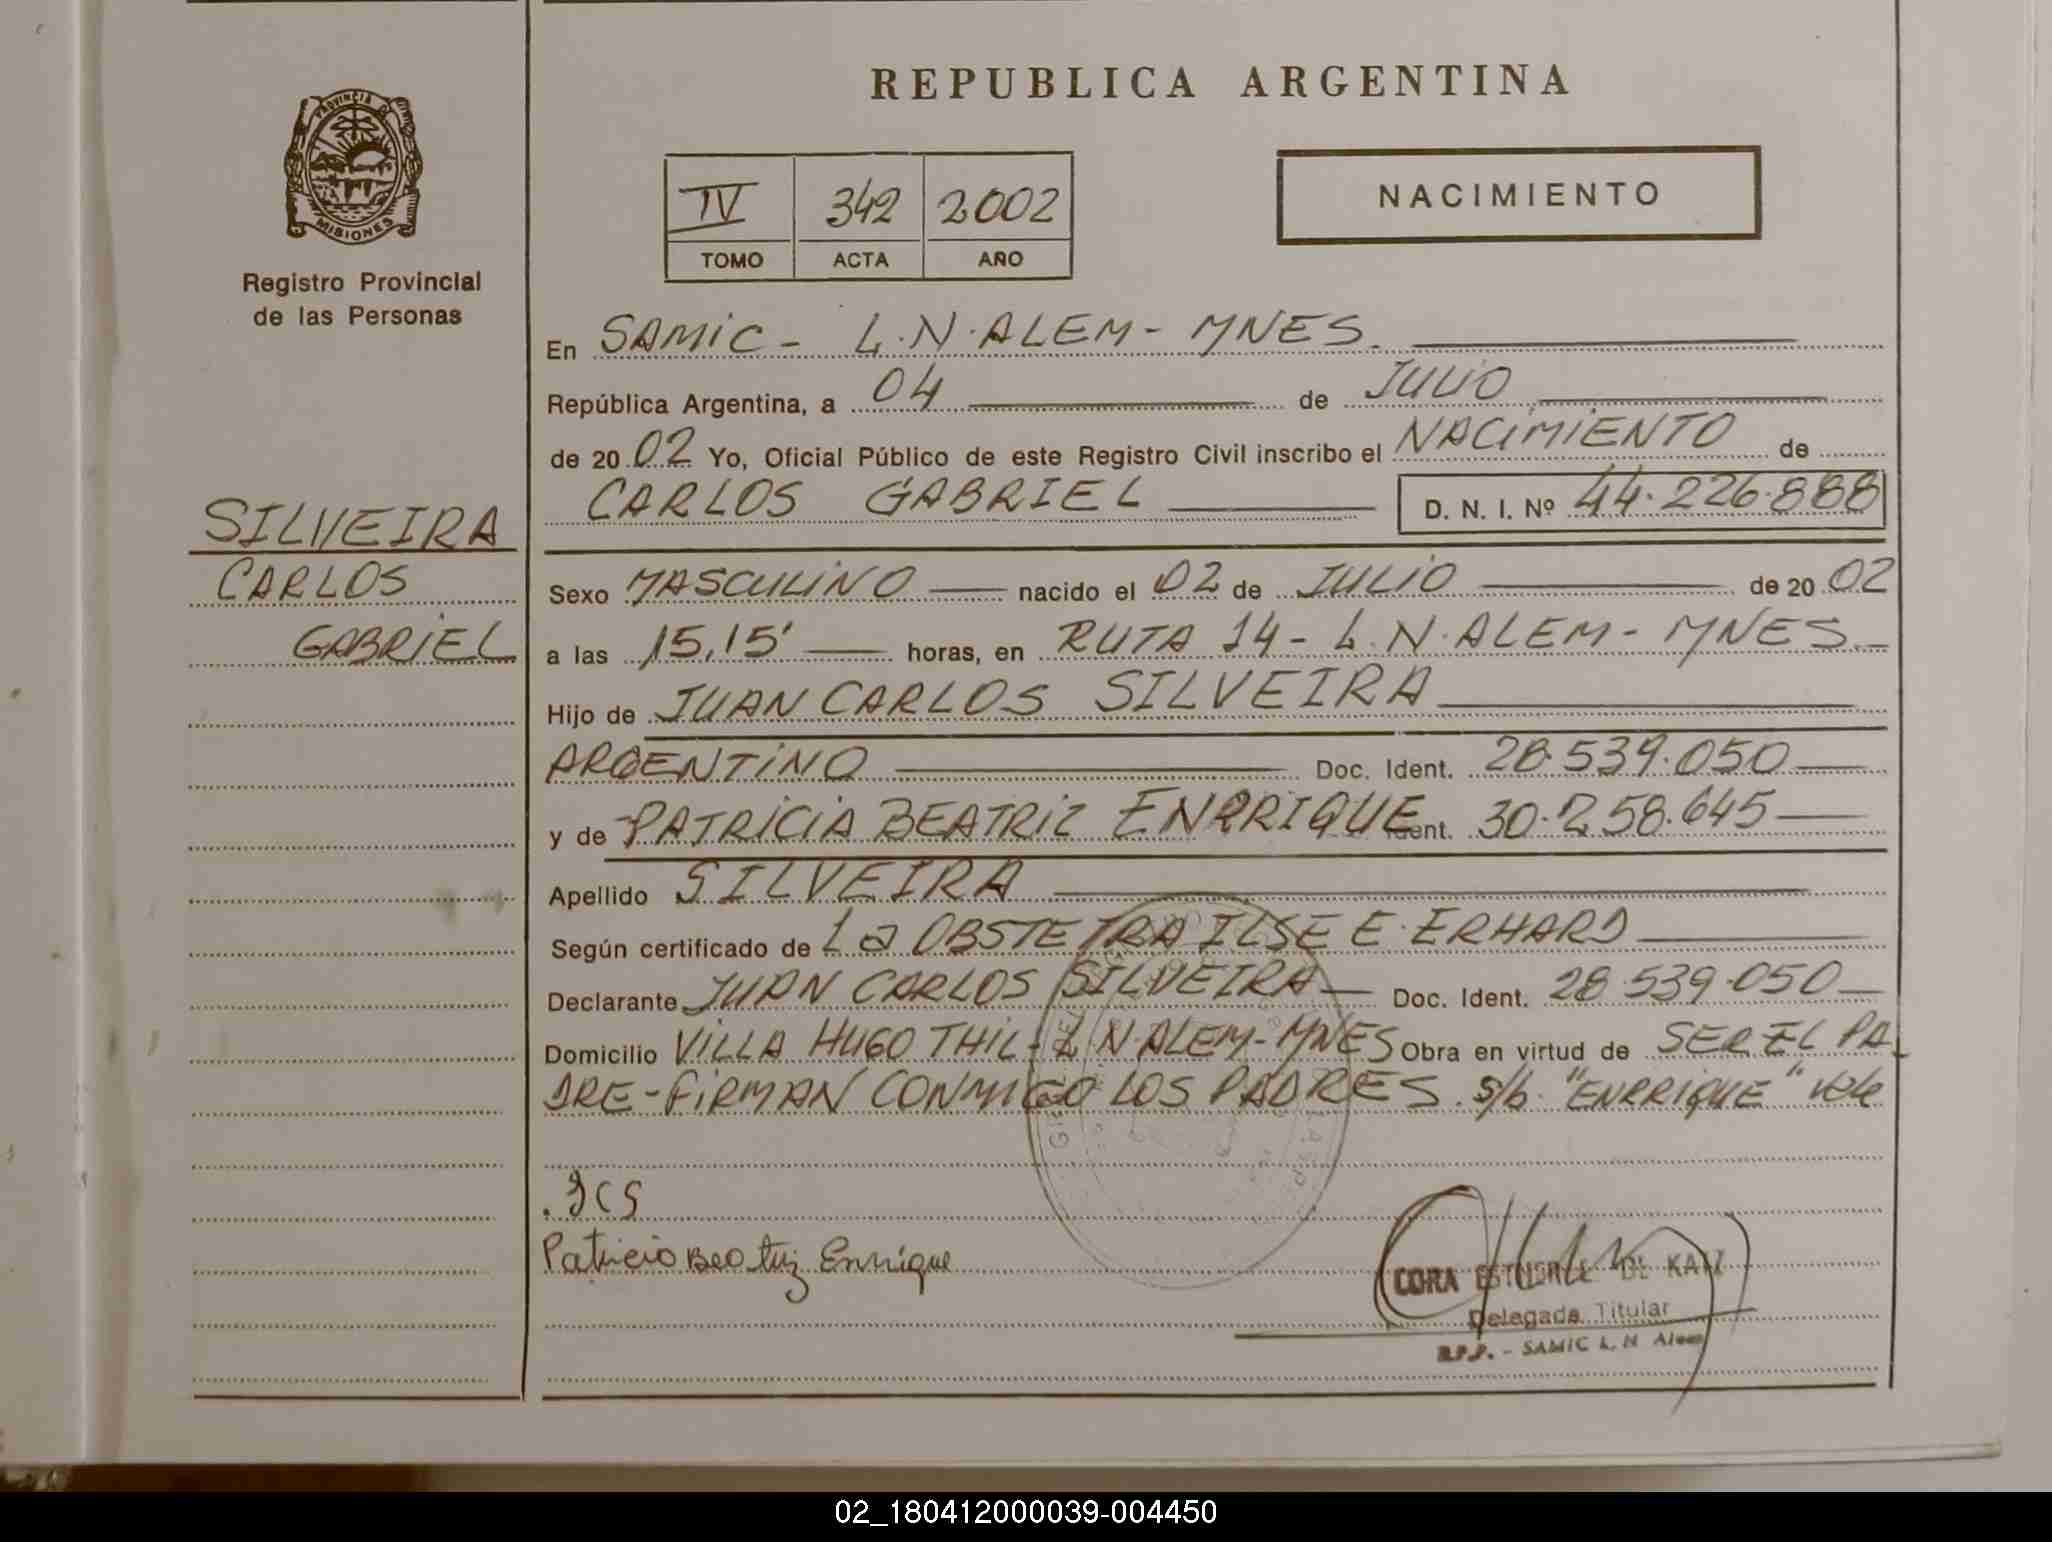 REPUBLICA ARGENTINA
PROVINCIA DE
MISIONES
Registro Provincial
de las Personas
IV 342 2002
TOMO ACTA AÑO
NACIMIENTO
En SAMIC - L.N. ALEM - MNES.
República Argentina, a 04 de JULIO
de 20 02 Yo, Oficial Público de este Registro Civil inscribo el NACIMIENTO de
CARLOS GABRIEL D. N. I. Nº 44.226.888
SILVEIRA
CARLOS
GABRIEL
Sexo MASCULINO nacido el 02 de JULIO de 20 02
a las 15,15' horas, en RUTA 14 - L.N. ALEM - MNES.
Hijo de JUAN CARLOS SILVEIRA
ARGENTINO Doc. Ident. 28.539.050
y de PATRICIA BEATRIZ ENRRIQUE ent. 30.258.645
Apellido SILVEIRA
Según certificado de La OBSTETRA ILSE E. ERHARD
Declarante JUAN CARLOS SILVEIRA Doc. Ident. 28.539.050
Domicilio VILLA HUGO THIL - L N ALEM - MNES Obra en virtud de SER EL PA
DRE - FIRMAN CONMIGO LOS PADRES. s/b. "ENRRIQUE" Vale
JCS
Patricia Beatriz Enrrique
CORA DE KATZ
Delegada Titular
R.P.P. - SAMIC L. N Alem
02_180412000039-004450